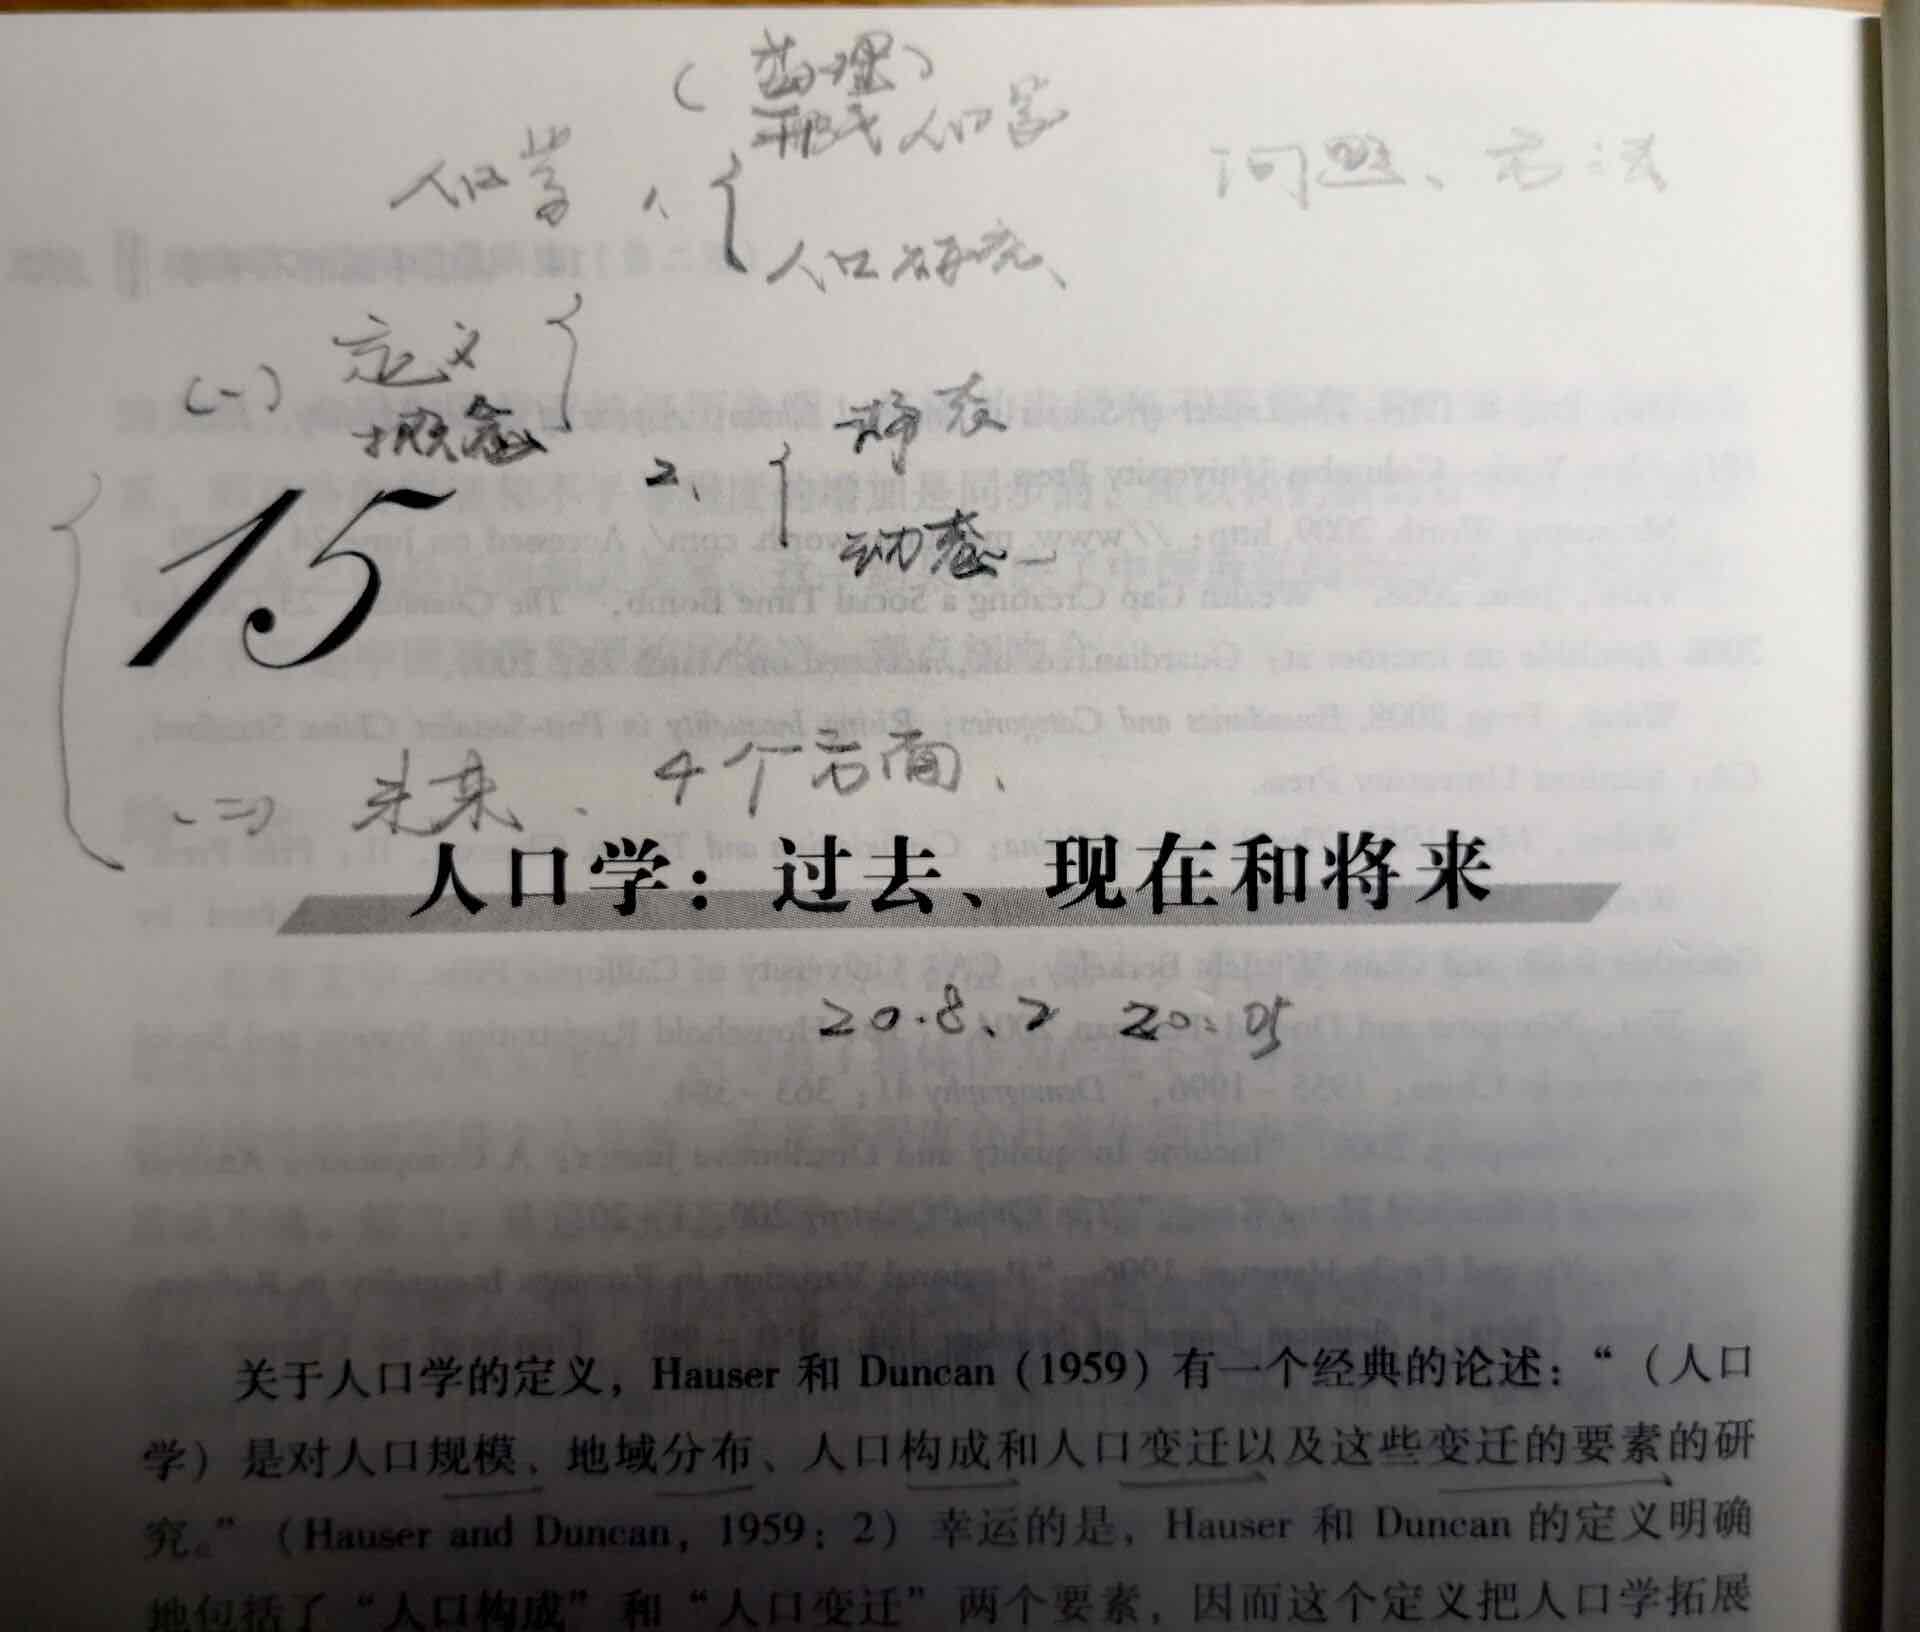 人口学
1、
形式人口学
人口研究、
问题、方法
(一)
定义
概念
2、
静态
动态
15
(二)
未来、4个方面、
人口学：过去、现在和将来
20.8.2 20:05
关于人口学的定义，Hauser 和 Duncan（1959）有一个经典的论述：“（人口
学）是对人口规模、地域分布、人口构成和人口变迁以及这些变迁的要素的研
究。”（Hauser and Duncan，1959：2）幸运的是，Hauser 和 Duncan 的定义明确
地包括了“人口构成”和“人口变迁”两个要素，因而这个定义把人口学拓展